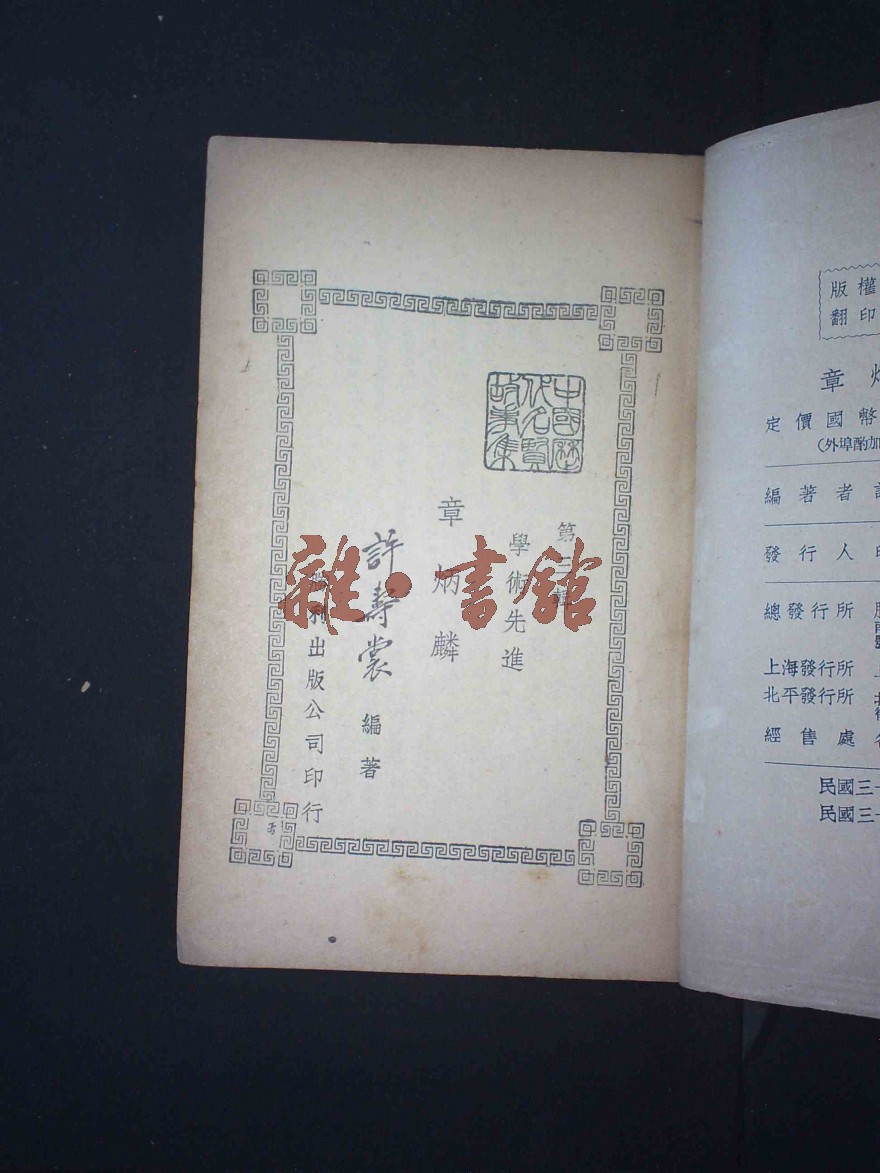 中國歷代名賢故事集
第三輯
學術先進
章炳麟
許壽裳 編著
利出版公司印行
雜·書館
版權
翻印
章
定價國幣
(外埠酌加
編著者
發行人
總發行所
上海發行所
北平發行所
經售處
民國三十
民國三十